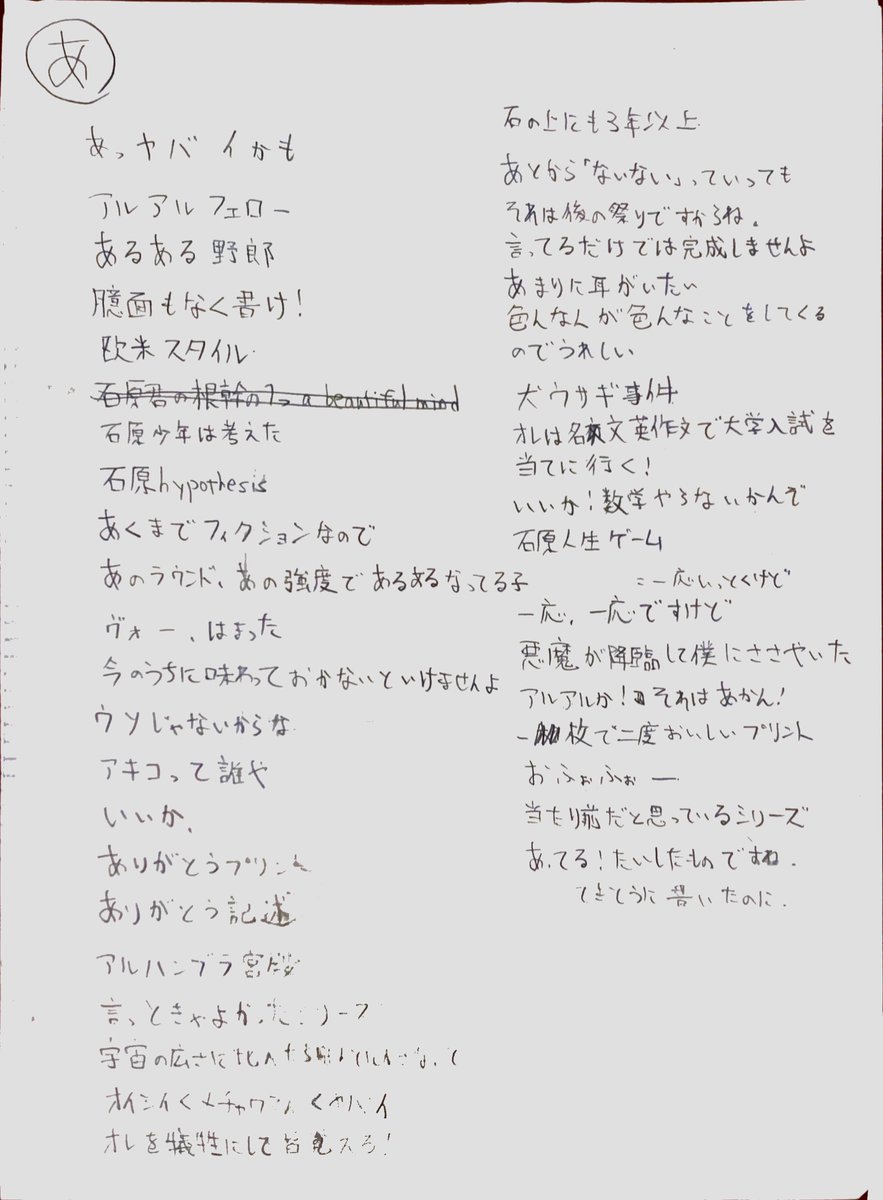 あ
あっヤバイかも
アルアルフェロー
あるある野郎
臆面もなく書け!
欧米スタイル
石原君の根幹の1つ a beautiful mind
石原少年は考えた
石原hypothesis
あくまでフィクションなので
あのラウンド、あの強度であるあるなってる子
ヴォー、はまった
今のうちに味わっておかないといけませんよ
ウソじゃないからな
アキコって誰や
いいか、
ありがとうプリント
ありがとう記述
アルハンブラ宮殿
言っときゃよかった
宇宙の広さに
オイシイくメチャ
オレを犠牲にして皆覚えろ!
石の上にも3年以上
あとから「ないない」っていっても
それは後の祭りですからね。
言ってるだけでは完成しませんよ
あまりに耳がいたい
色んな人が色んなことをしてくる
のでうれしい
犬ウサギ事件
オレは名文英作文で大学入試を
当てに行く!
いいか!数学やらないかんで
石原人生ゲーム
一応いっとくけど
一応、一応ですけど
悪魔が降臨して僕にささやいた
アルアルか!それはあかん!
一枚で二度おいしいプリント
おふぉふぉー
当たり前だと思っているシリーズ
あってる!たいしたものですね.
てきとうに書いたのに.